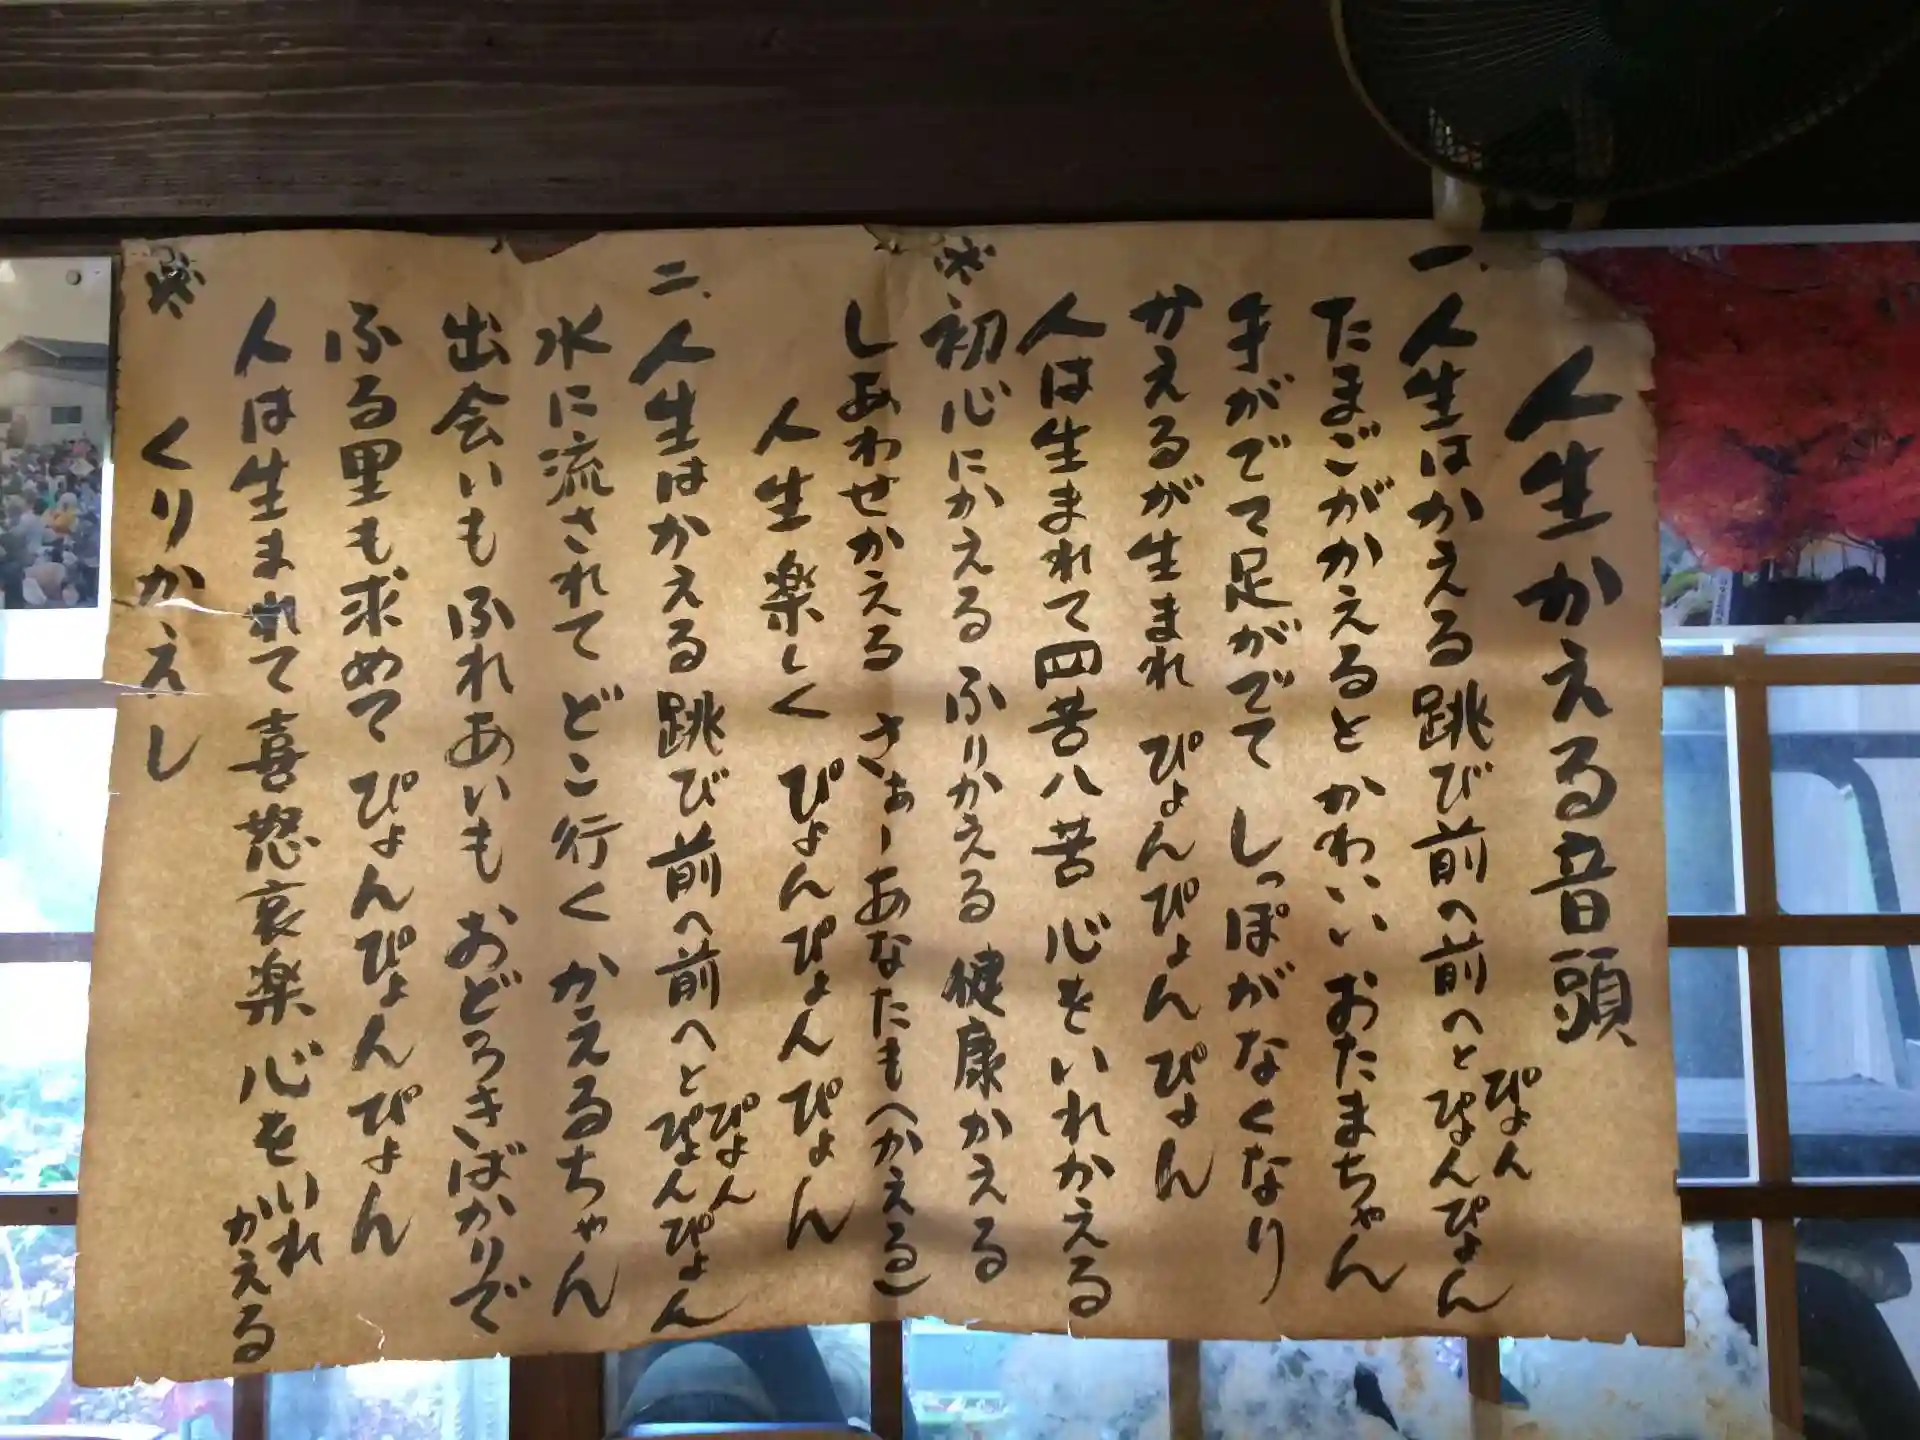 人生かえる音頭
一、人生はかえる跳び前へ前へとぴょんぴょんぴょん
たまごがかえるとかわいいおたまちゃん
手がでて足がでて しっぽがなくなり
かえるが生まれ ぴょんぴょんぴょんぴょん
人は生まれて四苦八苦 心をいれかえる
※初心にかえる ふりかえる 健康かえる
しあわせかえる さぁーあなたも(かえる)
人生 楽しく ぴょんぴょんぴょんぴょん
二、人生はかえる跳び前へ前へとぴょんぴょんぴょん
水に流されて どこ行く かえるちゃん
出会いもふれあいも おどろきばかりで
ふる里も求めて ぴょんぴょんぴょんぴょん
人は生まれて喜怒哀楽 心をいれがえる
※ くりかえし